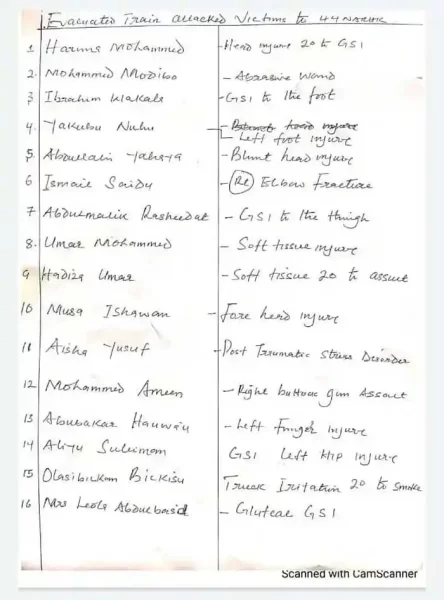 Evacuated Train attacked Victims to 44 NARHK
1. Haruna Mohammed - Head injure 20 to GSI
2. Mohammed Modibo - Abrasive wond
3. Ibrahim Wakala - GSI to the foot
4. Yakubu Nuhu - Blunt head injure
- Left foot injure
5. Abdullahi Yahaya - Blunt head injure
6 Ismail Saidu - (Rt) Elbow Fracture
7 Abdulmalik Rasheedat - GSI to the thigh
8. Umar Mohammed - Soft tissue injure
9 Hadiza Umar - Soft tissue 20 to assult
10 Musa Ishawan - Fore head injury
11 Aisha Yusuf - Post Traumatic Stress Disorder
12 Mohammed Ameen - Right buttock gun Assault
13 Abubakar - Left Finger injure
14 Aliyu Suleiman GSI Left Hip injury
15 Bickisu Truck Irritation 20 to Smoke
16 Mrs Leola - Gluteal GSI
Scanned with CamScanner